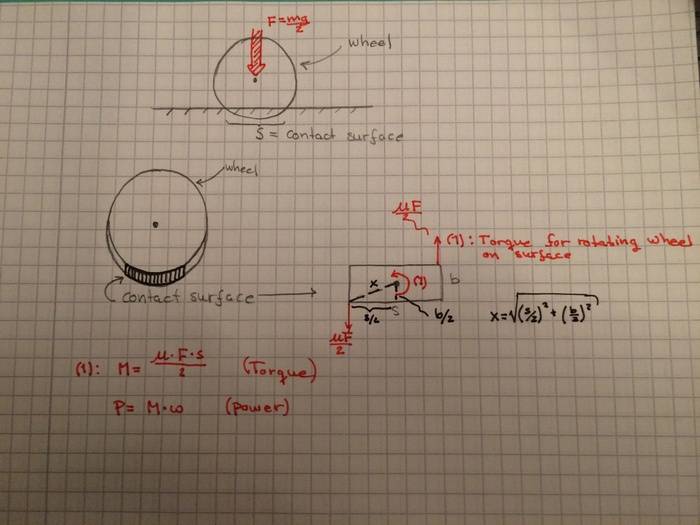 F = mg/2
wheel
S = contact surface
wheel
contact surface
μF/2
(1): Torque for rotating wheel
on surface
x
(1)
b
s/2
S
b/2
x = √((s/2)² + (b/2)²)
μF/2
(1): M = μ·F·s/2 (Torque)
P = M·ω (power)